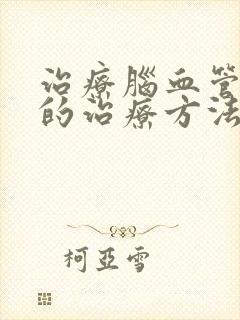 治療腦血管
的治療方法
柯亞雪